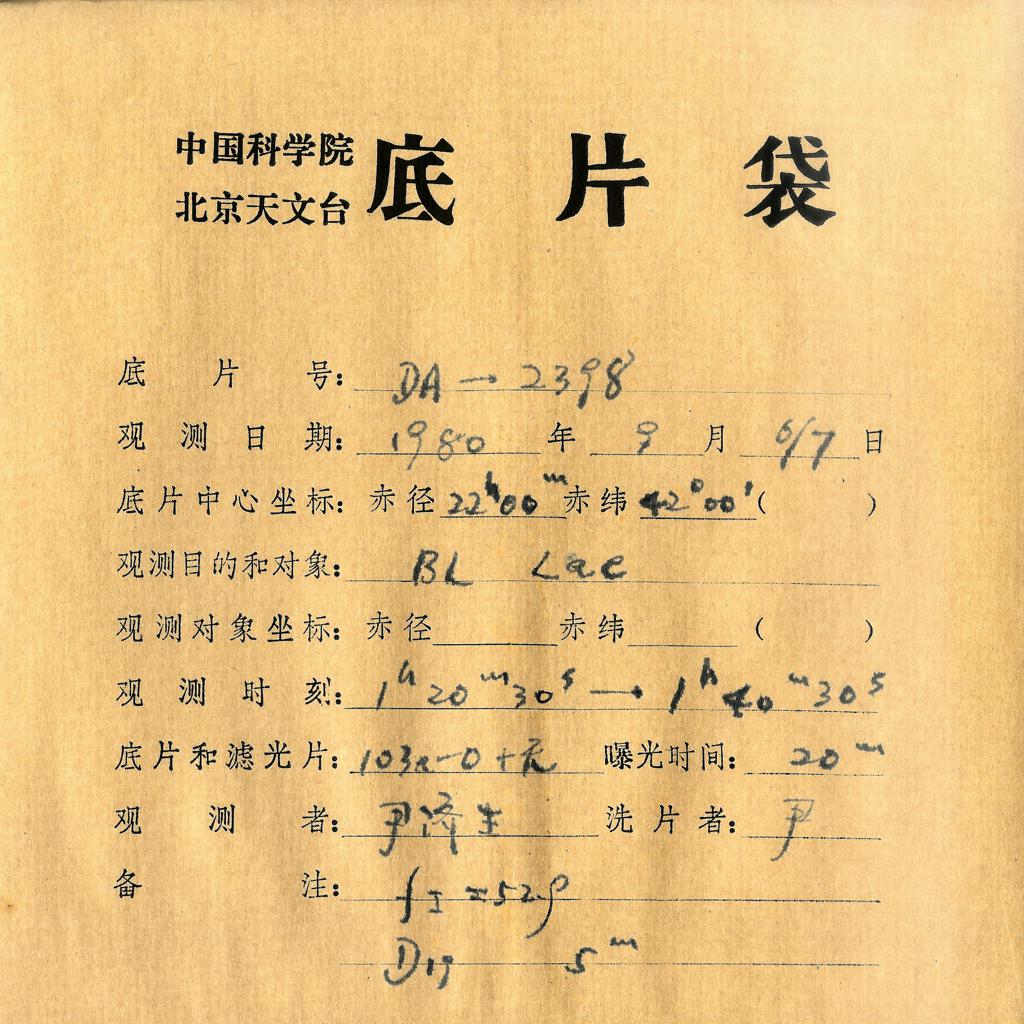 中国科学院
北京天文台
底片袋
底片号: DA → 2398
观测日期: 1980 年 9 月 6/7 日
底片中心坐标: 赤径 22ʰ00ᵐ 赤纬 42°00′ ( )
观测目的和对象: BL Lac
观测对象坐标: 赤径 赤纬 ( )
观测时刻: 1ʰ20ᵐ30ˢ → 1ʰ40ᵐ30ˢ
底片和滤光片: 103a-O+无 曝光时间: 20ᵐ
观测者: 尹济生 洗片者: 尹
备注:
D19 5ᵐ